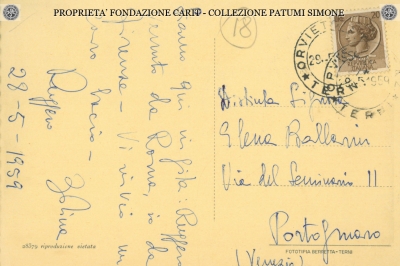 PROPRIETA' FONDAZIONE CARIT - COLLEZIONE PATUMI SIMONE
18
ORVIETO
TERNI
siamo qui in gita: Ruggero
venuto da Roma, io da
Firenze - Vi invio un
caro bacio -
Ruggero
28-5-1959
Distinta Sig.na
Elena Ballarin
Via del Seminario 11
Portogruaro
(Venezia)
28579 riproduzione vietata
FOTOTIPIA BERRETTA - TERNI